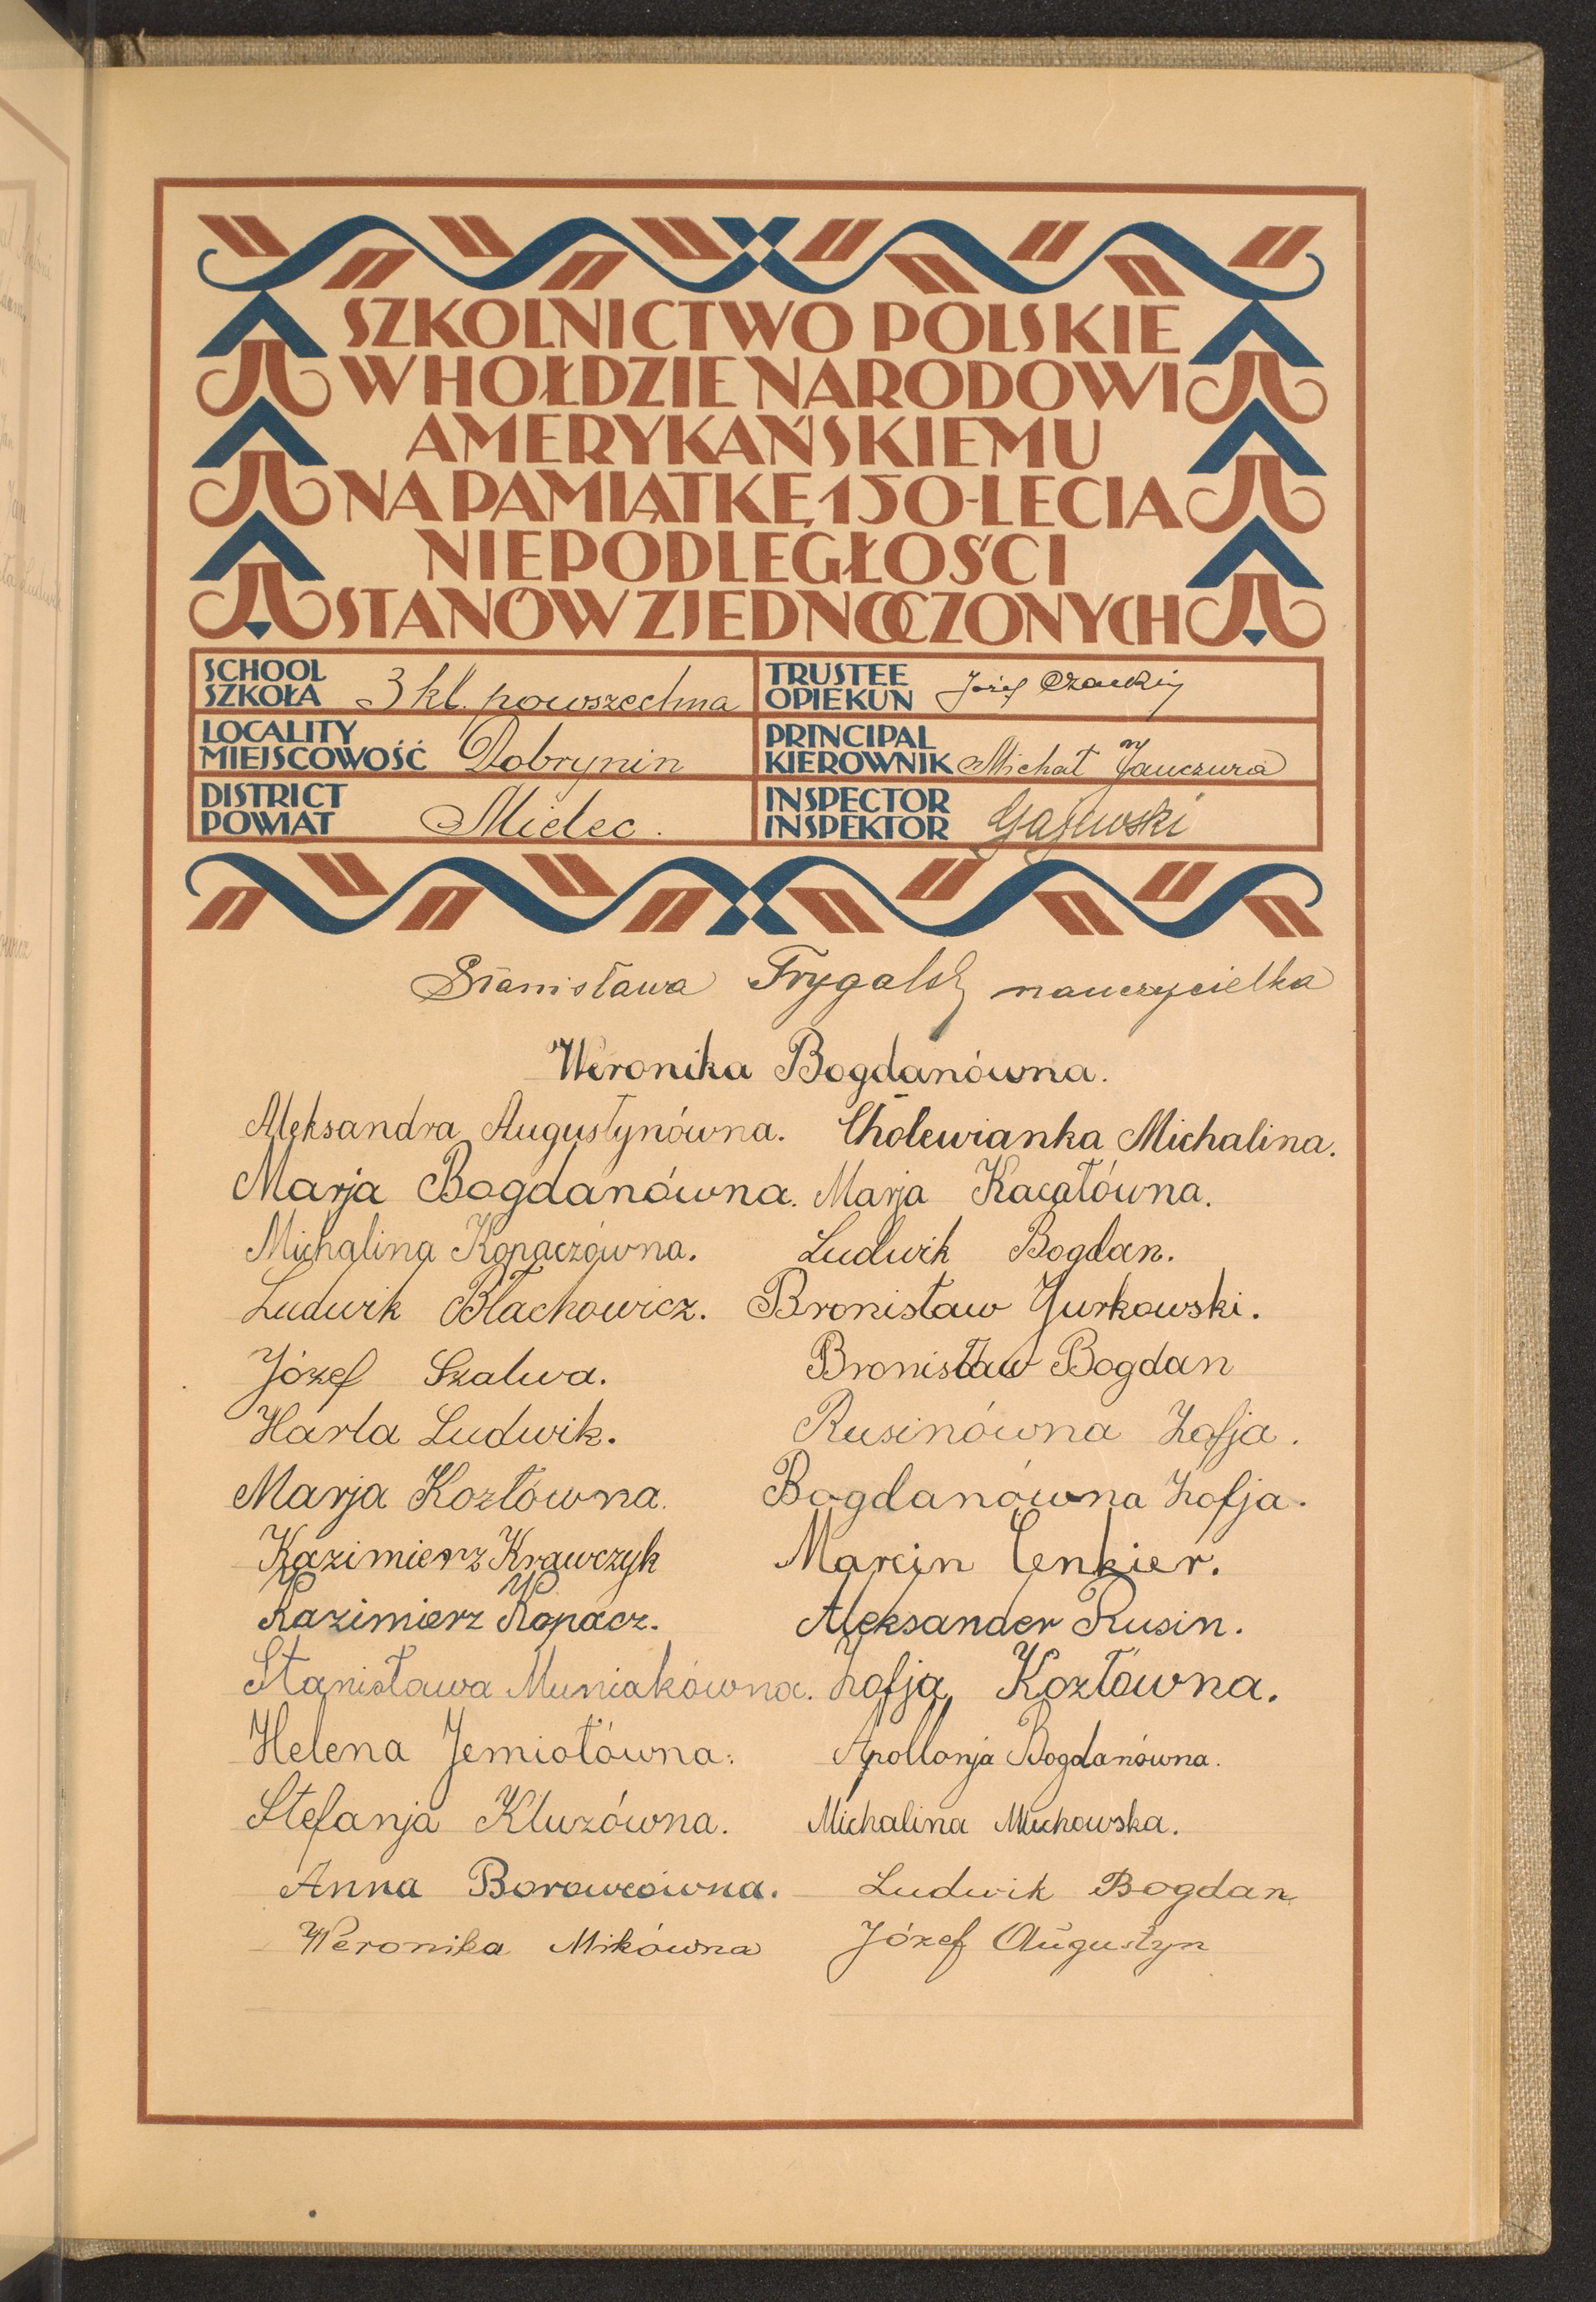 SZKOLNICTWO POLSKIE
W HOŁDZIE NARODOWI
AMERYKAŃSKIEMU
NA PAMIĄTKĘ 150-LECIA
NIEPODLEGŁOŚCI
STANÓW ZJEDNOCZONYCH
SCHOOL
SZKOŁA 3 kl. powszechna
TRUSTEE
OPIEKUN Józef
LOCALITY
MIEJSCOWOŚĆ Dobrynin
PRINCIPAL
KIEROWNIK Michał Janczura
DISTRICT
POWIAT Mielec.
INSPECTOR
INSPEKTOR Gajewski
Stanisława nauczycielka
Weronika Bogdanówna.
Aleksandra Augustynówna. Cholewianka Michalina.
Marja Bogdanówna. Marja Kacałówna.
Michalina Kopaczówna. Ludwik Bogdan.
Ludwik Błachowicz. Bronisław Jurkowski.
Józef Szalwa. Bronisław Bogdan
Harla Ludwik. Rusinówna Zofja.
Marja Kozłówna. Bogdanówna Zofja.
Kazimierz Krawczyk Marcin Cenkier.
Kazimierz Kopacz. Aleksander Rusin.
Stanisława Muniakówna. Zofja Kozłówna.
Helena Jemiołówna. Apollonja Bogdanówna.
Stefanja Kluzówna. Michalina Muchowska.
Anna Borowcówna. Ludwik Bogdan
Weronika Mikówna Józef Augustyn